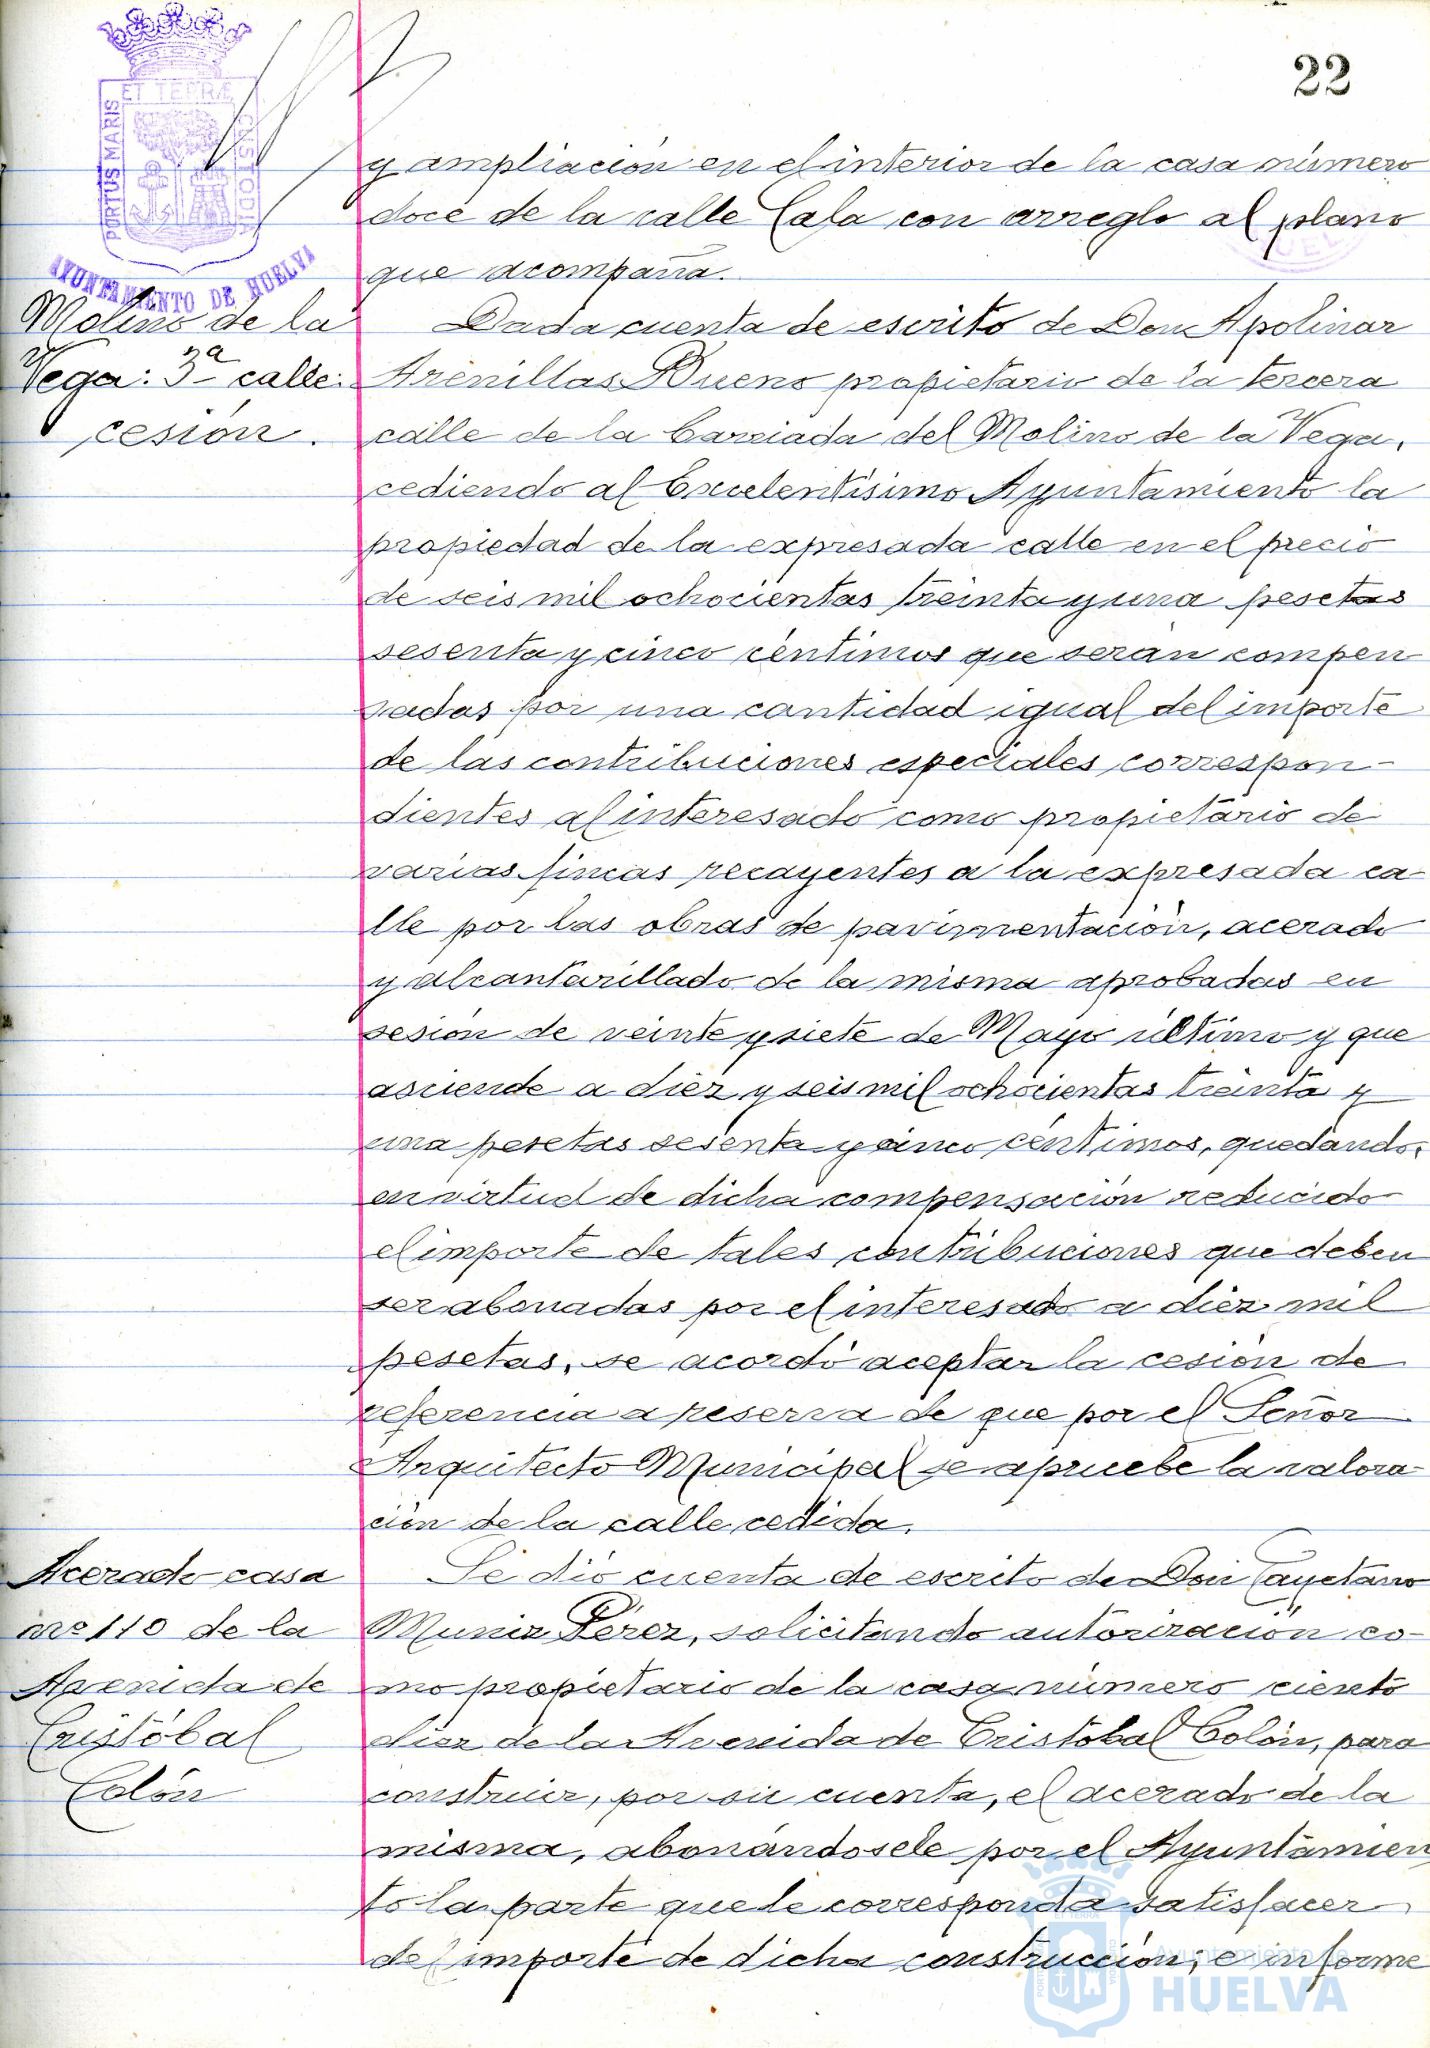 22
ET TERRÆ
PORTUS MARIS
CUSTODIA
AYUNTAMIENTO DE HUELVA
y ampliación en el interior de la casa número
doce de la calle Cala con arreglo al plano
que acompaña.
Molino de la
Vega: 3ª calle:
cesión.
Dada cuenta de escrito de Don Apolinar
Arenillas Bueno propietario de la tercera
calle de la Barriada del Molino de la Vega,
cediendo al Excelentísimo Ayuntamiento la
propiedad de la expresada calle en el precio
de seis mil ochocientas treinta y una pesetas
sesenta y cinco céntimos que serán compen
sadas por una cantidad igual del importe
de las contribuciones especiales correspon-
dientes al interesado como propietario de
varias fincas recayentes a la expresada ca
lle por las obras de pavimentación, acerado
y alcantarillado de la misma aprobadas en
sesión de veinte y siete de Mayo último y que
asciende a diez y seis mil ochocientas treinta y
una pesetas sesenta y cinco céntimos, quedando,
en virtud de dicha compensación reducido
el importe de tales contribuciones que deben
ser abonadas por el interesado a diez mil
pesetas, se acordó aceptar la cesión de
referencia a reserva de que por el Señor
Arquitecto Municipal se apruebe la valora-
ción de la calle cedida.
Acerado casa
nº 110 de la
Avenida de
Cristóbal
Colón
Se dió cuenta de escrito de Don Cayetano
Muniz Pérez, solicitando autorización co-
mo propietario de la casa número ciento
diez de la Avenida de Cristobal Colón, para
construir, por su cuenta, el acerado de la
misma, abonándosele por el Ayuntamien
to la parte que le corresponda satisfacer
del importe de dicha construcción; e informe
Ayuntamiento de
HUELVA